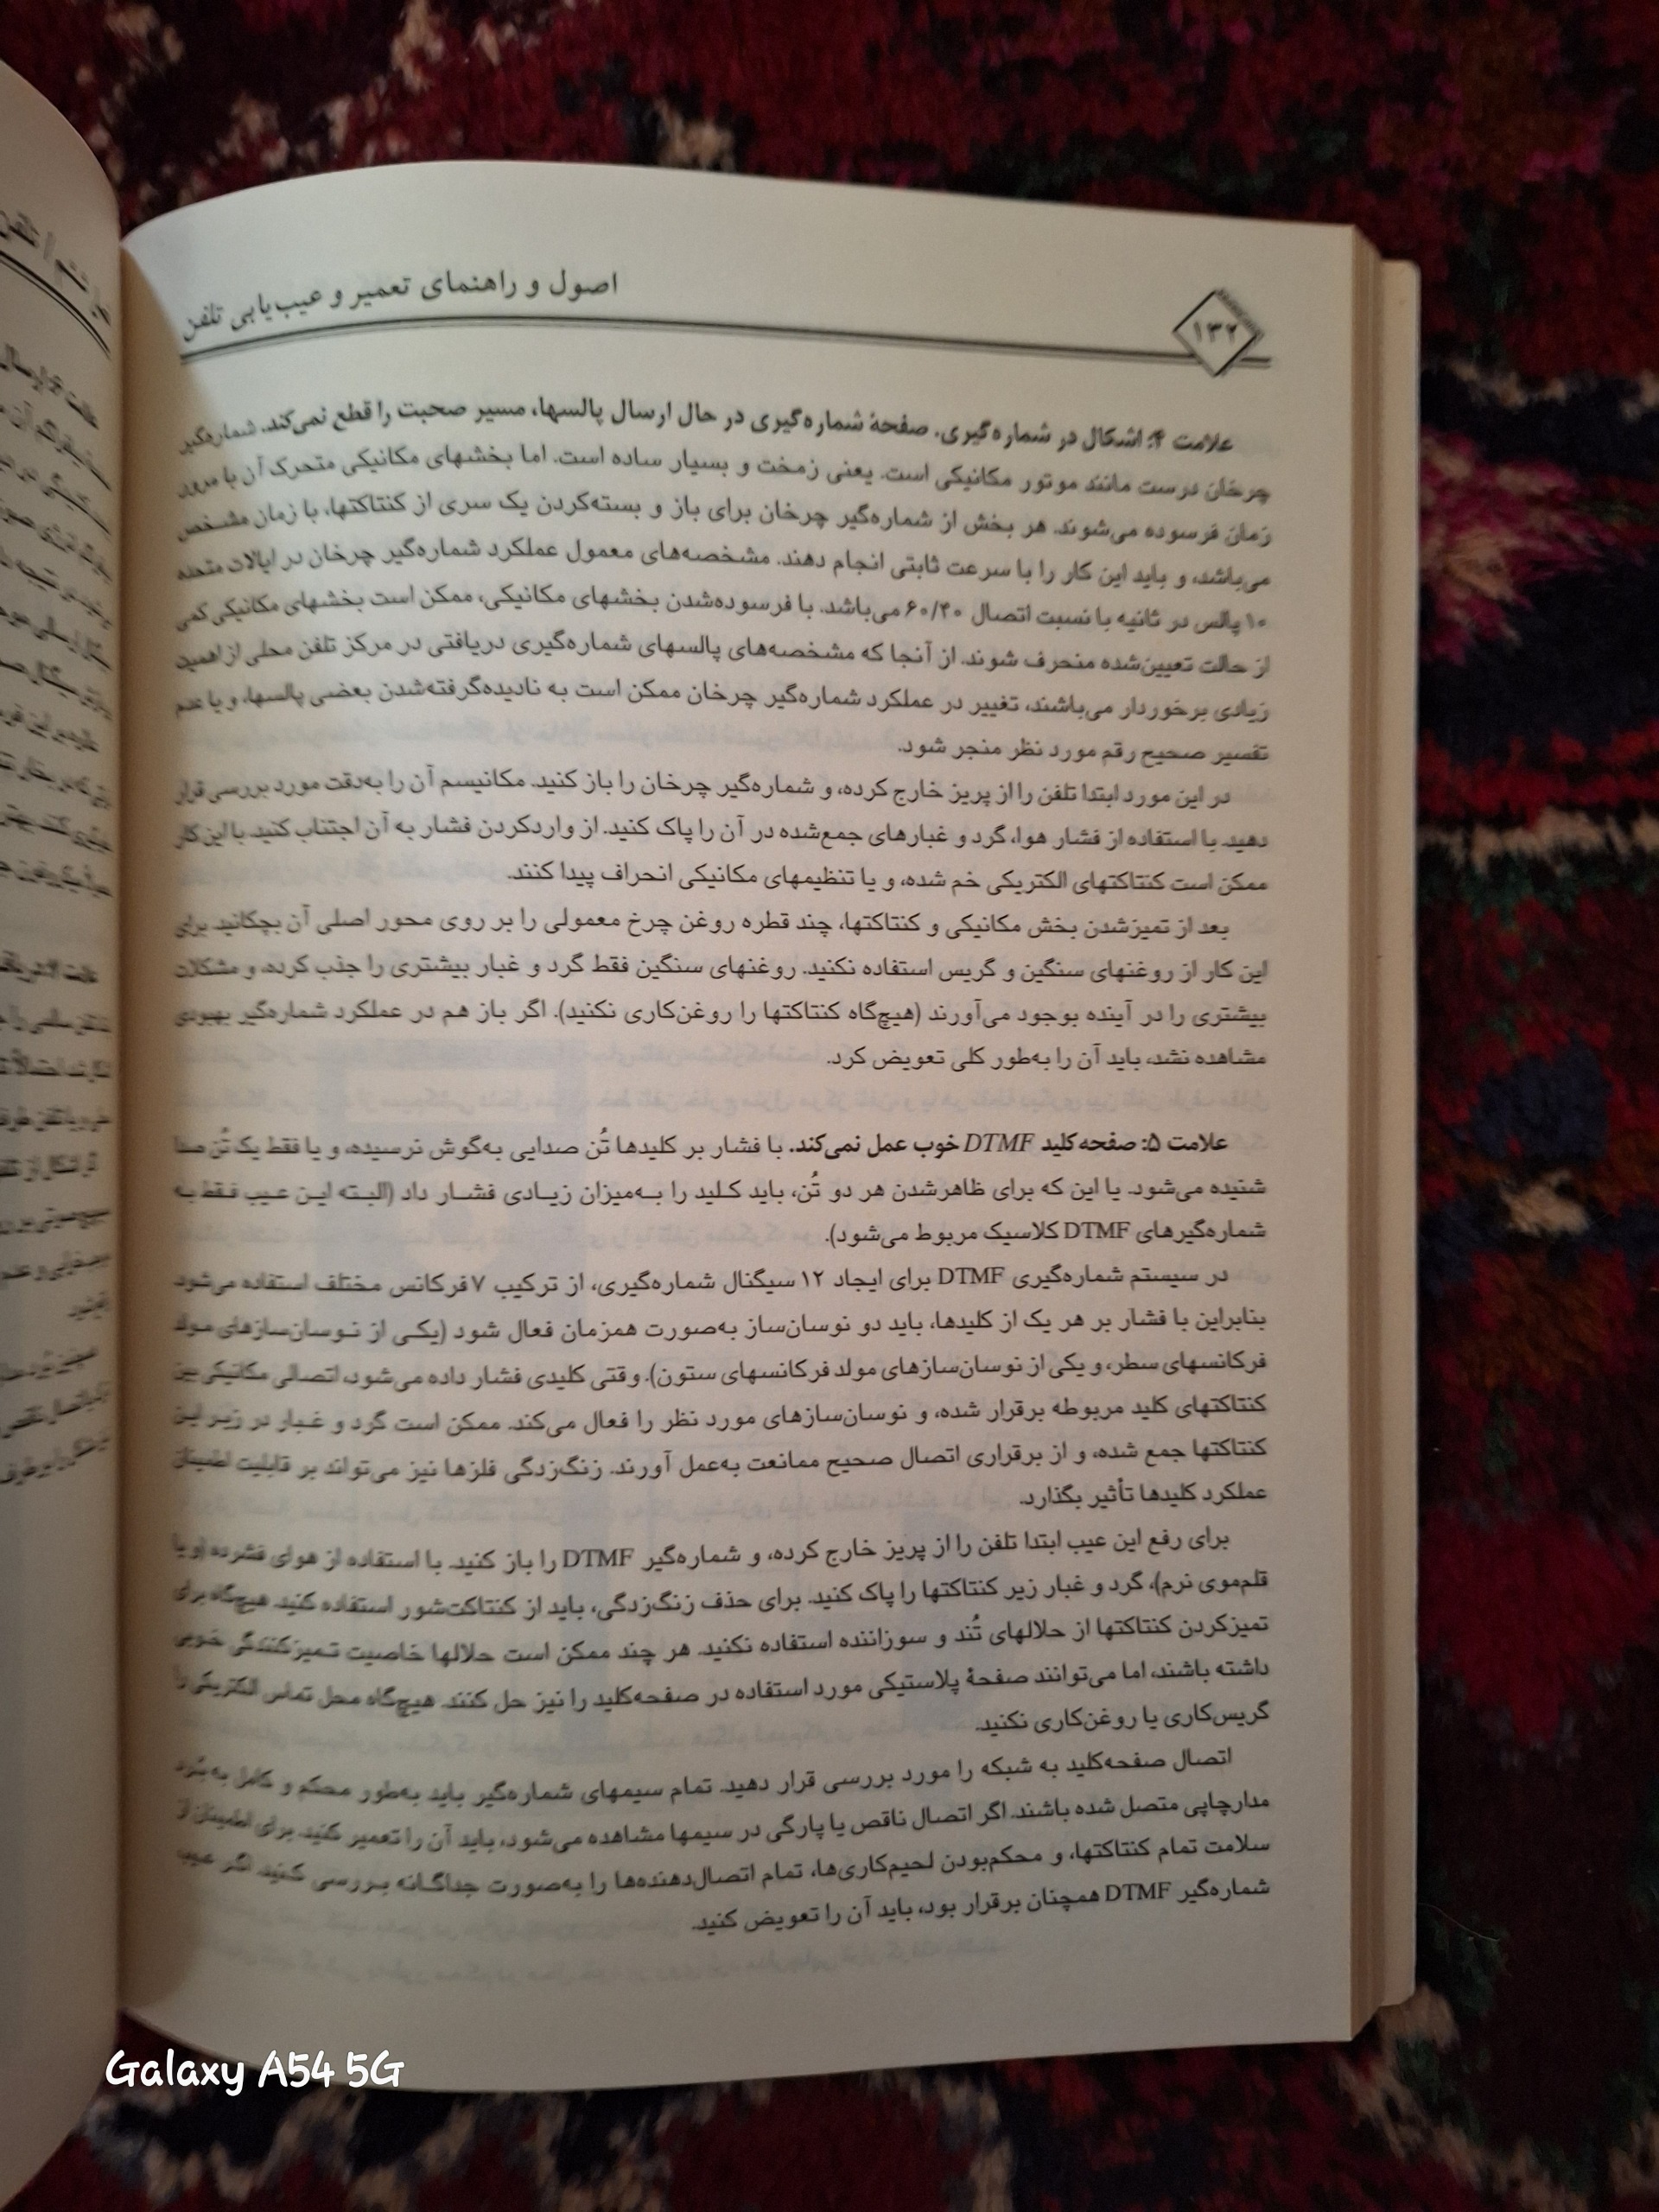 اصول و راهنمای تعمیر و عیب‌یابی تلفن
۱۳۲
علامت ۴: اشکال در شماره‌گیری. صفحهٔ شماره‌گیری در حال ارسال پالسها، مسیر صحبت را قطع نمی‌کند. شماره‌گیر
چرخان درست مانند موتور مکانیکی است. یعنی زمخت و بسیار ساده است. اما بخشهای مکانیکی متحرک آن با مرور
زمان فرسوده می‌شوند. هر بخش از شماره‌گیر چرخان برای باز و بسته‌کردن یک سری از کنتاکتها، با زمان مشخص
می‌باشد، و باید این کار را با سرعت ثابتی انجام دهند. مشخصه‌های معمول عملکرد شماره‌گیر چرخان در ایالات متحده
۱۰ پالس در ثانیه با نسبت اتصال ۶۰/۴۰ می‌باشد. با فرسوده‌شدن بخشهای مکانیکی، ممکن است بخشهای مکانیکی کمی
از حالت تعیین‌شده منحرف شوند. از آنجا که مشخصه‌های پالسهای شماره‌گیری دریافتی در مرکز تلفن محلی از اهمیت
زیادی برخوردار می‌باشند، تغییر در عملکرد شماره‌گیر چرخان ممکن است به نادیده‌گرفته‌شدن بعضی پالسها، و یا عدم
تفسیر صحیح رقم مورد نظر منجر شود.
در این مورد ابتدا تلفن را از پریز خارج کرده، و شماره‌گیر چرخان را باز کنید. مکانیسم آن را به‌دقت مورد بررسی قرار
دهید. با استفاده از فشار هوا، گرد و غبارهای جمع‌شده در آن را پاک کنید. از واردکردن فشار به آن اجتناب کنید. با این کار
ممکن است کنتاکتهای الکتریکی خم شده، و یا تنظیمهای مکانیکی انحراف پیدا کنند.
بعد از تمیزشدن بخش مکانیکی و کنتاکتها، چند قطره روغن چرخ معمولی را بر روی محور اصلی آن بچکانید. برای
این کار از روغنهای سنگین و گریس استفاده نکنید. روغنهای سنگین فقط گرد و غبار بیشتری را جذب کرده، و مشکلات
بیشتری را در آینده بوجود می‌آورند (هیچ‌گاه کنتاکتها را روغن‌کاری نکنید). اگر باز هم در عملکرد شماره‌گیر بهبودی
مشاهده نشد، باید آن را به‌طور کلی تعویض کرد.
علامت ۵: صفحه کلید DTMF خوب عمل نمی‌کند. با فشار بر کلیدها تُن صدایی به‌گوش نرسیده، و یا فقط یک تُن صدا
شنیده می‌شود. یا این که برای ظاهرشدن هر دو تُن، باید کلید را به‌میزان زیادی فشار داد (البته این عیب فقط به
شماره‌گیرهای DTMF کلاسیک مربوط می‌شود).
در سیستم شماره‌گیری DTMF برای ایجاد ۱۲ سیگنال شماره‌گیری، از ترکیب ۷ فرکانس مختلف استفاده می‌شود
بنابراین با فشار بر هر یک از کلیدها، باید دو نوسان‌ساز به‌صورت همزمان فعال شود (یکی از نوسان‌سازهای مولد
فرکانسهای سطر، و یکی از نوسان‌سازهای مولد فرکانسهای ستون). وقتی کلیدی فشار داده می‌شود، اتصالی مکانیکی بین
کنتاکتهای کلید مربوطه برقرار شده، و نوسان‌سازهای مورد نظر را فعال می‌کند. ممکن است گرد و غبار در زیر این
کنتاکتها جمع شده، و از برقراری اتصال صحیح ممانعت به‌عمل آورند. زنگ‌زدگی فلزها نیز می‌تواند بر قابلیت اطمینان
عملکرد کلیدها تأثیر بگذارد.
برای رفع این عیب ابتدا تلفن را از پریز خارج کرده، و شماره‌گیر DTMF را باز کنید. با استفاده از هوای فشرده (و یا
قلم‌موی نرم)، گرد و غبار زیر کنتاکتها را پاک کنید. برای حذف زنگ‌زدگی، باید از کنتاکت‌شور استفاده کنید. هیچ‌گاه برای
تمیزکردن کنتاکتها از حلالهای تُند و سوزاننده استفاده نکنید. هر چند ممکن است حلالها خاصیت تمیزکنندگی خوبی
داشته باشند، اما می‌توانند صفحهٔ پلاستیکی مورد استفاده در صفحه‌کلید را نیز حل کنند. هیچ‌گاه محل تماس الکتریکی را
گریس‌کاری یا روغن‌کاری نکنید.
اتصال صفحه‌کلید به شبکه را مورد بررسی قرار دهید. تمام سیمهای شماره‌گیر باید به‌طور محکم و کامل به بُرد
مدارچاپی متصل شده باشند. اگر اتصال ناقص یا پارگی در سیمها مشاهده می‌شود، باید آن را تعمیر کنید. برای اطمینان از
سلامت تمام کنتاکتها، و محکم‌بودن لحیم‌کاری‌ها، تمام اتصال‌دهنده‌ها را به‌صورت جداگانه بررسی کنید. اگر عیب
شماره‌گیر DTMF همچنان برقرار بود، باید آن را تعویض کنید.
Galaxy A54 5G